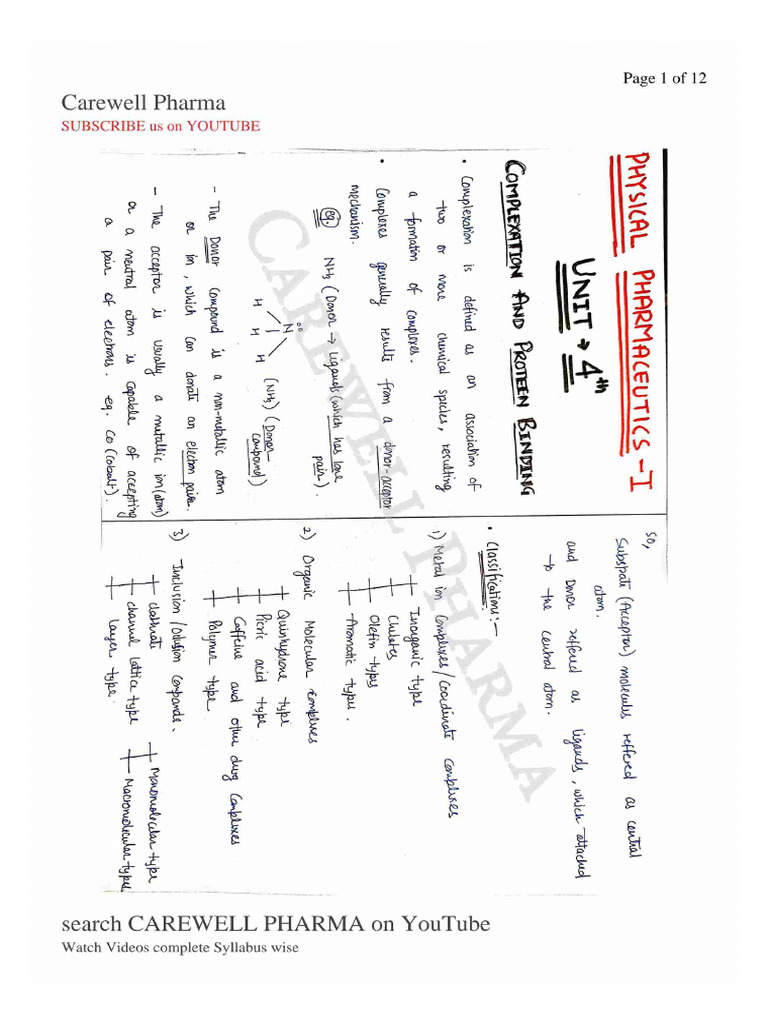 Page 1 of 12
Carewell Pharma
SUBSCRIBE us on YOUTUBE
PHYSICAL PHARMACEUTICS-I
UNIT → 4th
COMPLEXATION AND PROTEIN BINDING
• Complexation is defined as an association of
two or more chemical species, resulting
a formation of complexes.
• Complexes generally results from a donor-acceptor
mechanism.
eg. NH3 (Donor → Ligands (which has lone
pair).
N
H H H
(NH3) (Donor
compound)
- The Donor compound is a non-metallic atom
or Im, which can donate an electron paire.
- The acceptor is usually a metallic ion (atom)
or a neutral atom is capable of accepting
a pair of electrons. eg. Co (Cobalt).
So,
Substrate (Acceptor) molecules reffered as central
atom.
and Donor reffered as ligands, which attached
to the central atom.
• Classifications:-
1) Metal ion Complexes / Coordinate complexes
Inorganic type
Chlates
Olefin types
Aromatic types.
2) Organic Molecular Complexes
Quinhydrone type
Picric acid type
Caffeine and other drug Complexes
Polymer type.
3) Inclusion / Oclusion Compounds.
clathrate
channel lattice type
Layer type.
Monomolecular type
Macromolecular type
CAREWELL PHARMA
search CAREWELL PHARMA on YouTube
Watch Videos complete Syllabus wise